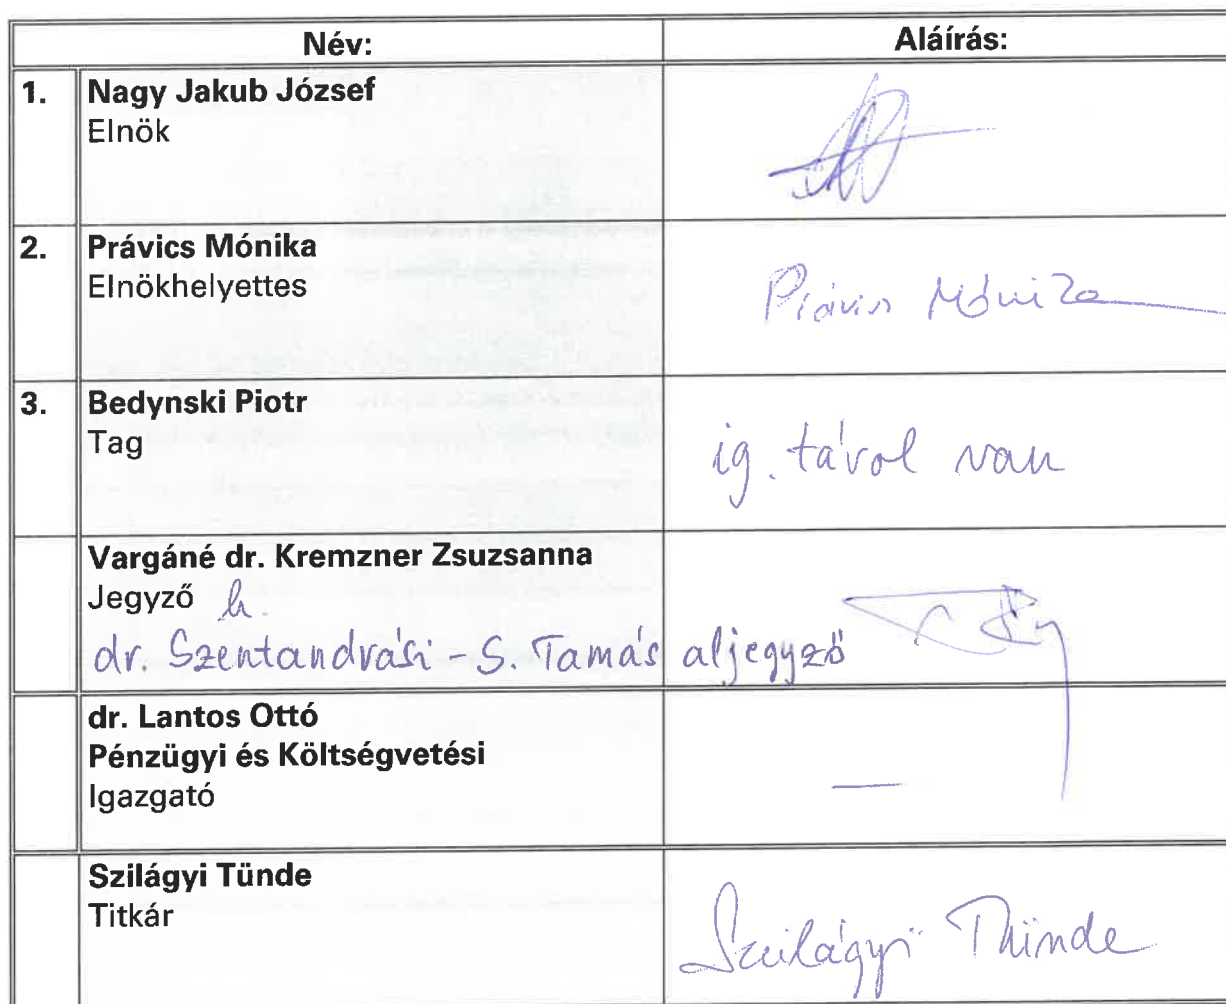 Név: Aláírás:
1. Nagy Jakub József
Elnök
2. Právics Mónika
Elnökhelyettes
Právics Mónika
3. Bedynski Piotr
Tag
ig. távol van
Vargáné dr. Kremzner Zsuzsanna
Jegyző h.
dr. Szentandrási-S. Tamás aljegyző
dr. Lantos Ottó
Pénzügyi és Költségvetési
Igazgató
—
Szilágyi Tünde
Titkár
Szilágyi Tünde